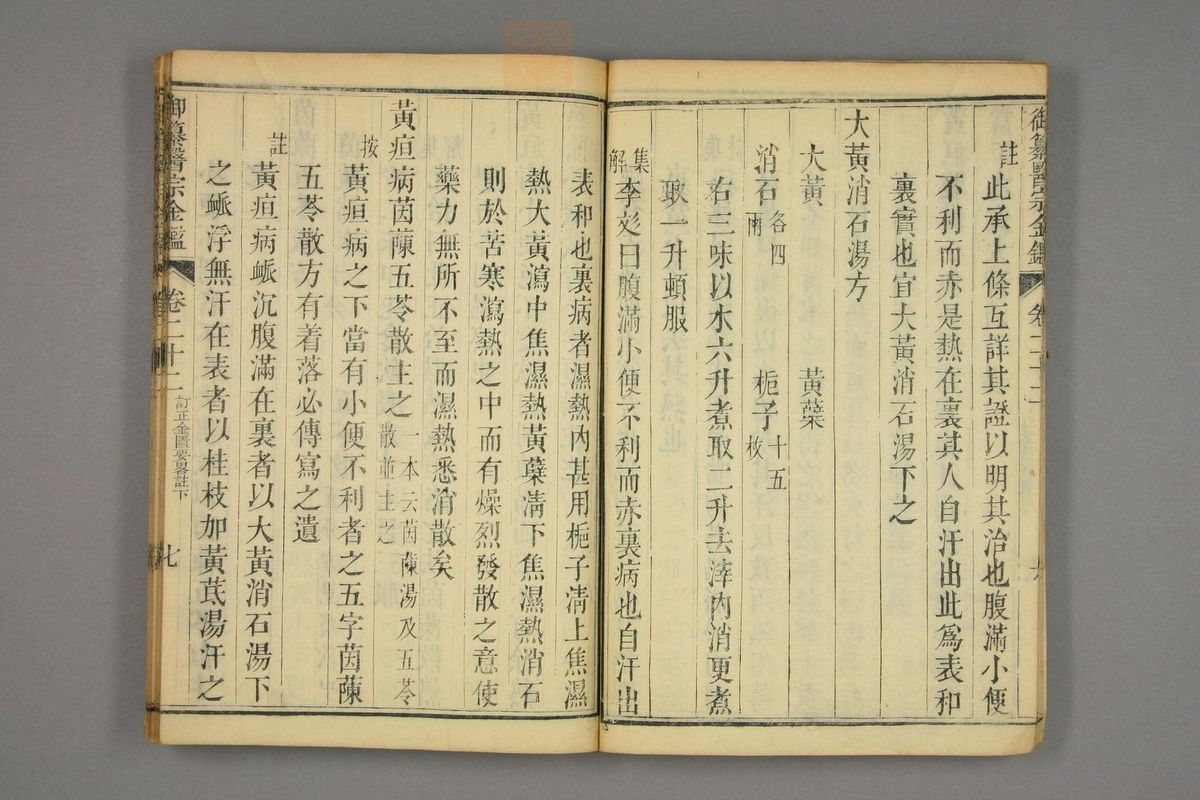 御纂醫宗金鑑
卷二十二
註
此承上條互詳其證以明其治也腹滿小便
不利而赤是熱在裏其人自汗出此爲表和
裏實也宜大黃消石湯下之
大黃消石湯方
大黃
黃蘗
消石各四兩
梔子十五枚
右三味以水六升煮取二升去滓內消更煮
取一升頓服
集解
李彣曰腹滿小便不利而赤裏病也自汗出
表和也裏病者濕熱內甚用梔子淸上焦濕
熱大黃瀉中焦濕熱黃蘗淸下焦濕熱消石
則於苦寒瀉熱之中而有燥烈發散之意使
藥力無所不至而濕熱悉消散矣
黃疸病茵蔯五苓散主之一本云茵蔯湯及五苓散並主之
按
黃疸病之下當有小便不利者之五字茵蔯
五苓散方有着落必傳寫之遺
註
黃疸病脈沉腹滿在裏者以大黃消石湯下
之脈浮無汗在表者以桂枝加黃芪湯汗之
御纂醫宗金鑑
卷二十二
訂正金匱要畧註下
七